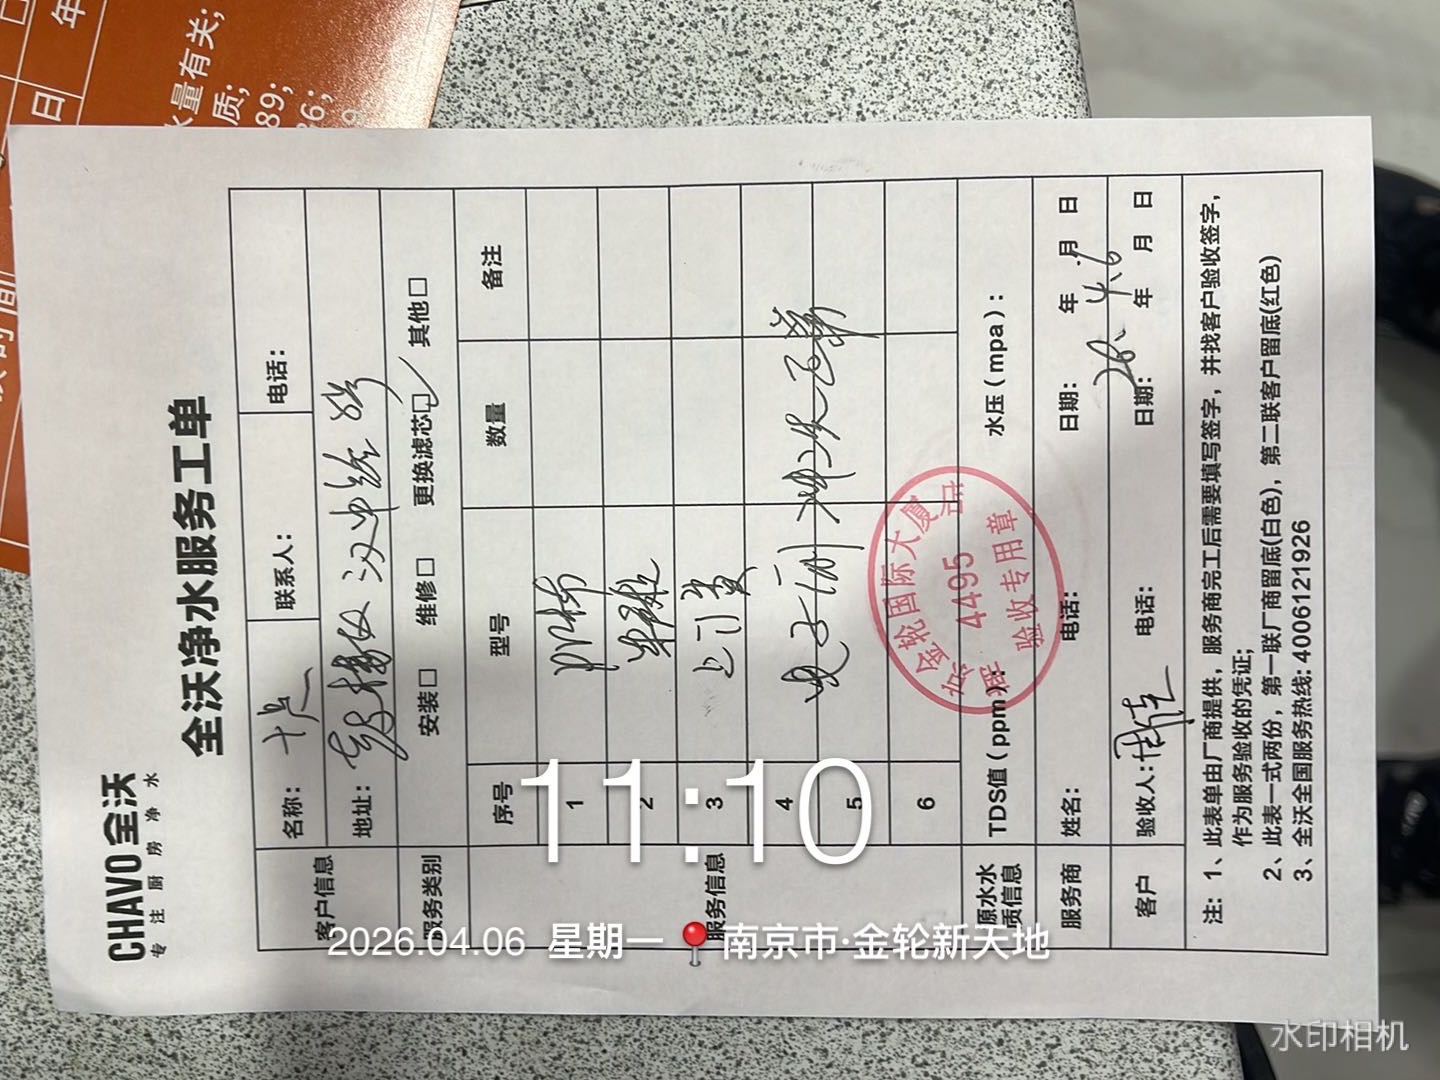 CHAVO 全沃
专注厨房净水
全沃净水服务工单
客户信息
名称：
联系人：
电话：
地址：
服务类别
安装□ 维修□ 更换滤芯□ 其他□
服务信息
序号 型号 数量 备注
1
2
3 上门费
4
5
6
原水水质信息
TDS值（ppm）：
水压（mpa）：
服务商
姓名：
电话：
日期： 年 月 日
客户
验收人：
电话：
日期： 年 月 日
26. 4.6
金轮国际大厦
4495
验收专用章
注：1、此表单由厂商提供，服务商完工后需要填写签字，并找客户验收签字，
作为服务验收的凭证；
2、此表一式两份，第一联厂商留底(白色)，第二联客户留底(红色)
3、全沃全国服务热线:4006121926
年
日
量有关；
质；
89；
11:10
2026.04.06 星期一 南京市·金轮新天地
水印相机